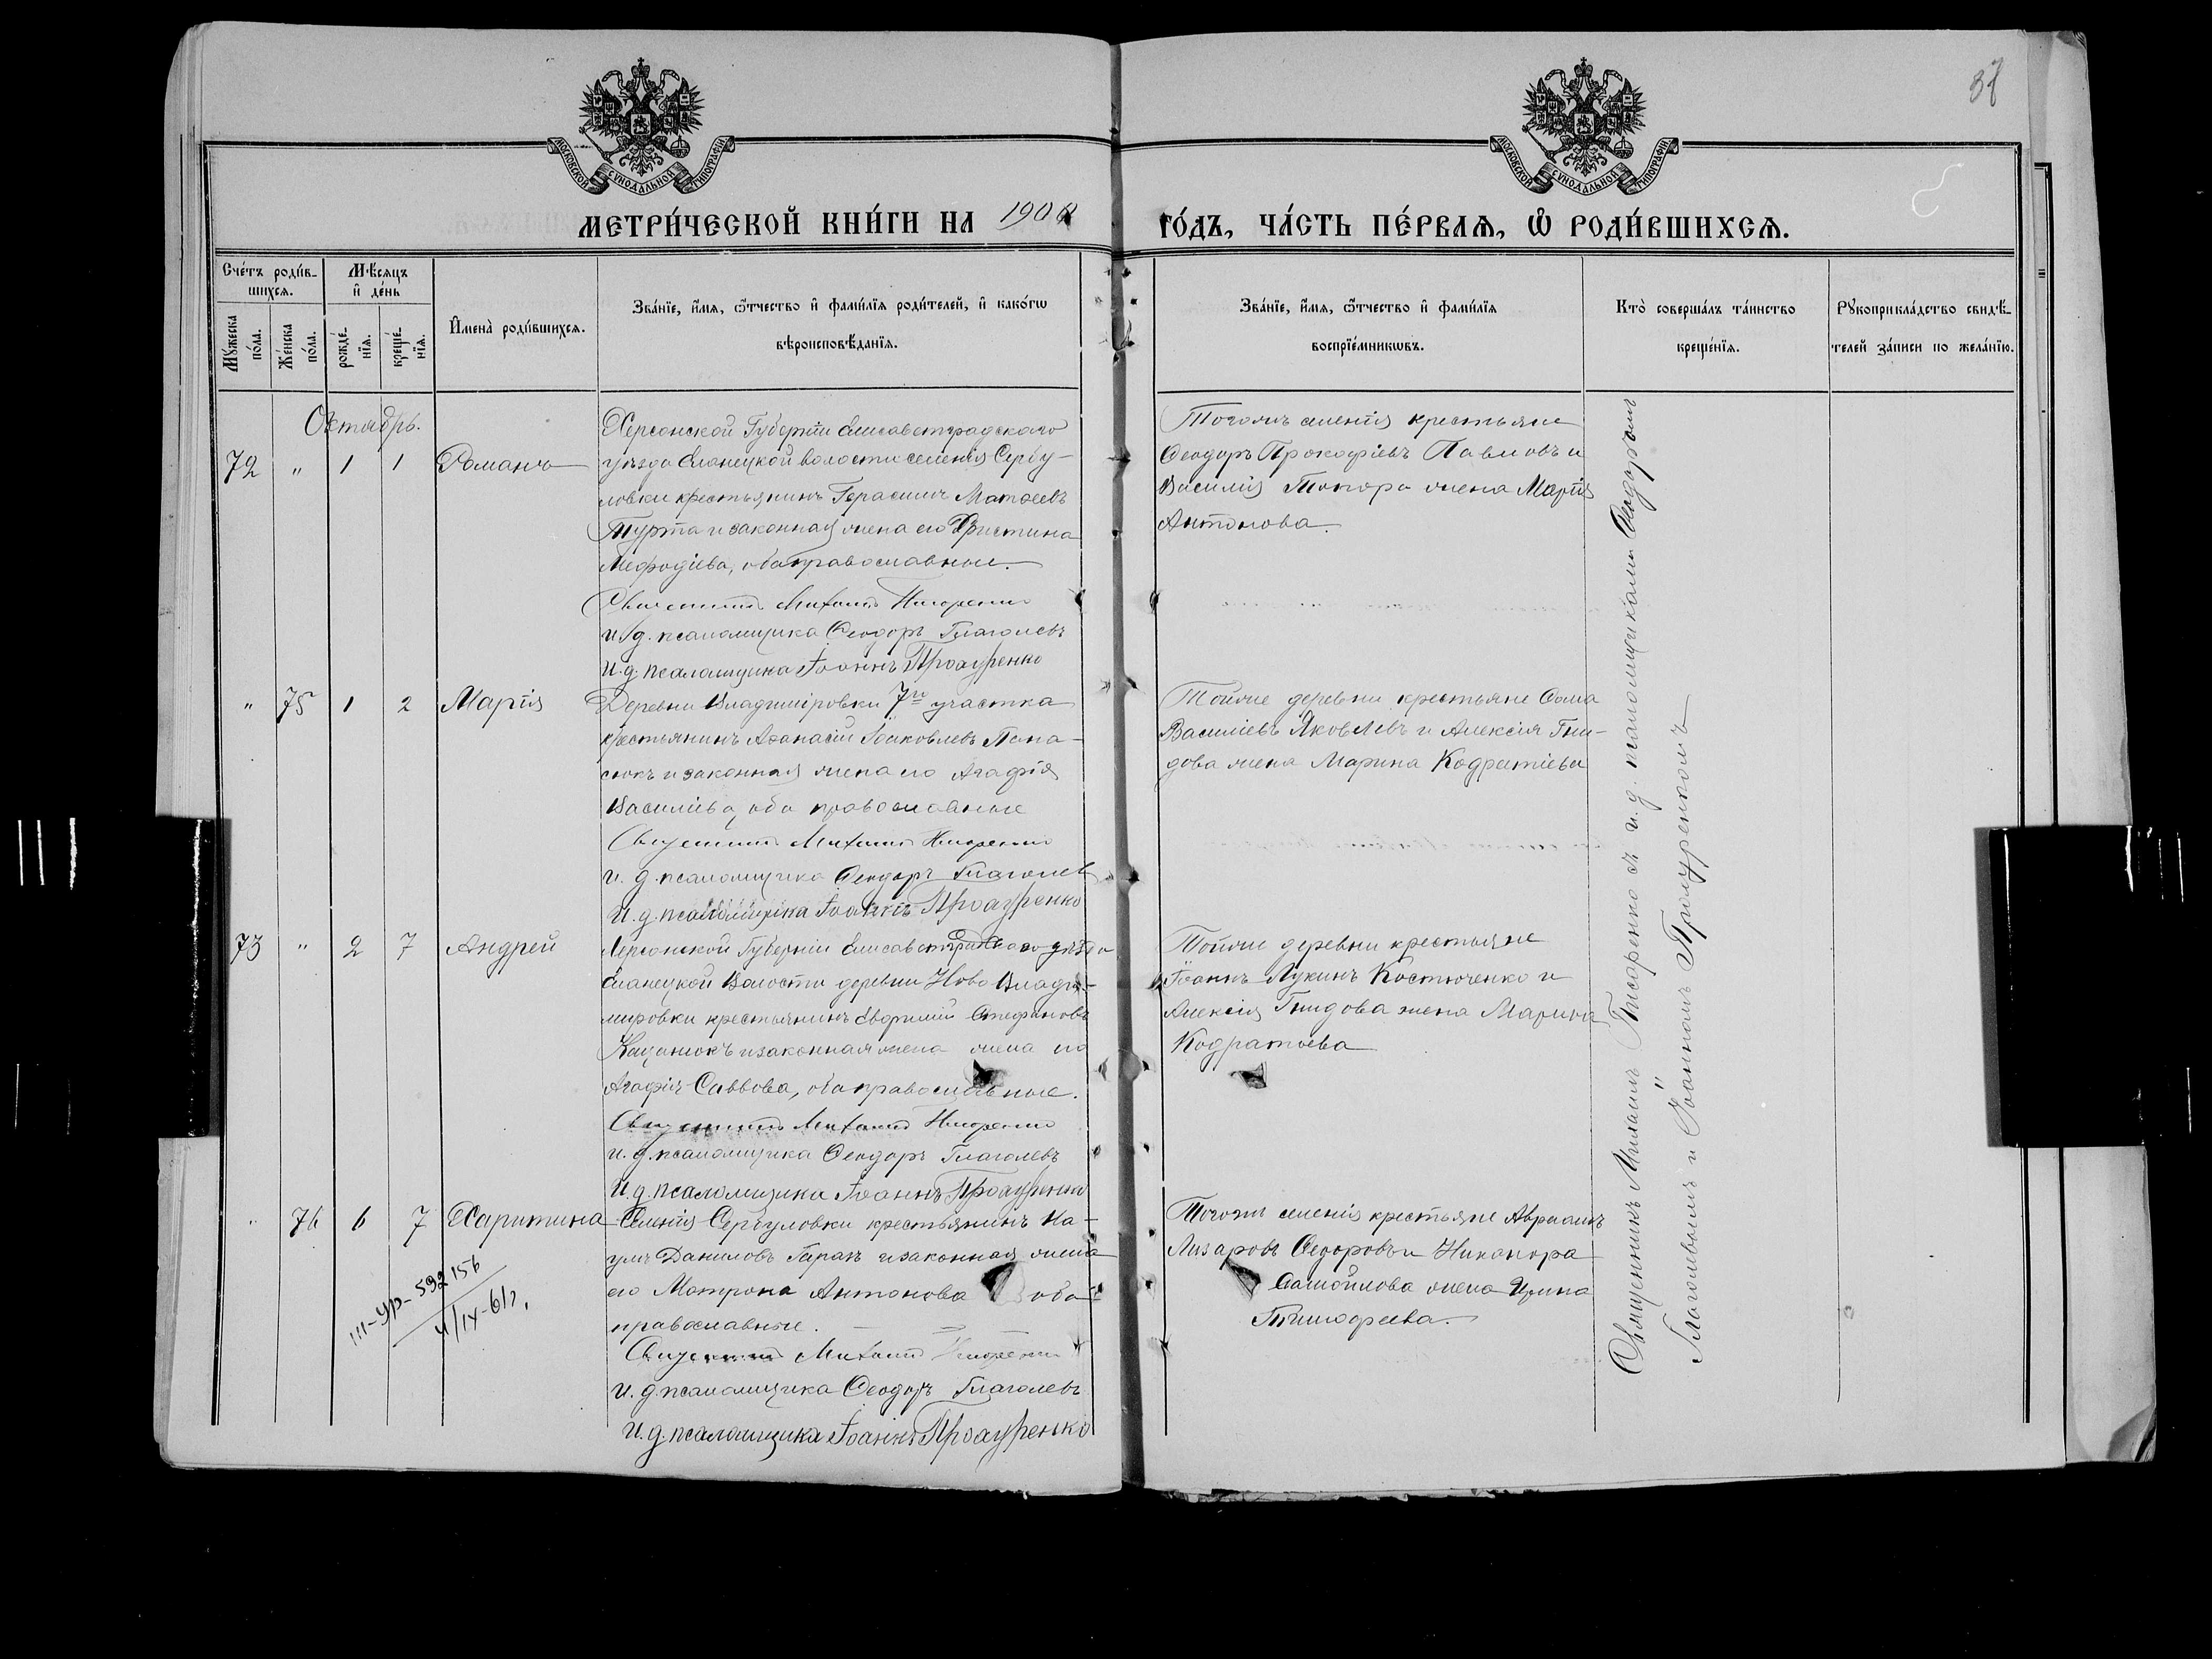 87
МОСКОВСКОЙ СѴНОДАЛЬНОЙ ТИПОГРАФІИ
МОСКОВСКОЙ СѴНОДАЛЬНОЙ ТИПОГРАФІИ
МЕТРИ́ЧЕСКОЙ КНИ́ГИ НА 190
ГО́ДЪ, ЧА́СТЬ ПЕ́РВАѦ, Ѽ РОДИ́ВШИХСѦ.
Сче́тъ роди́в-
шихсѧ.
Мꙋ́жеска
по́ла.
Же́нска
по́ла.
Мѣ́сѧцъ
и҆ де́нь
рожде́-
нїѧ.
креще́-
нїѧ.
И҆мена̀ роди́вшихсѧ.
Зва́нїе, и҆́мѧ, ѻ҆́тчество и҆ фами́лїѧ роди́телей, и҆ како́гѡ
вѣроисповѣ́данїѧ.
Зва́нїе, и҆́мѧ, ѻ҆́тчество и҆ фами́лїѧ
воспрїе́мникѡвъ.
Кто̀ соверша́лъ та́инство
креще́нїѧ.
Рꙋкоприкла́дство свидѣ́-
телей за́писи по жела́нїю.
Октябрь.
72 " 1 1 Романъ
Херсонской Губерніи Елисаветградскаго
уѣзда Еланецкой волости селенія Сербу-
ловки крестьянинъ Герасимъ Матѳеевъ
Турта и законная жена его Христина
Мефодіева, оба православные.
Священникъ Михаилъ
и. д. псаломщика Ѳеодоръ Глаголевъ
И. д. псаломщика Іоаннъ Проауренко
Тогожъ селенія крестьяне
Ѳеодоръ Прокофіевъ Павловъ и
Василія Токора жена Марія
Антонова.
" 75 1 2 Марія
Деревни Владиміровки 7го участка
крестьянинъ Аѳанасій Іоаковлевъ Пана-
сюкъ и законная жена его Агафія
Василіева, оба православные
Священникъ Михаилъ
и. д. псаломщика Ѳеодоръ Глаголевъ
И. д. псаломщика Іоаннъ Проауренко
Тойже деревни крестьяне Ѳома
Василіевъ Яковлевъ и Алексія Гни-
дова жена Марина Кодратіева
73 " 2 7 Андрей
Херсонской Губерніи Елисаветградскаго уѣзда
Еланецкой Волости деревни Ново Влади-
мировки крестьянинъ Евфимій Стефановъ
Кацанюкъ и законная жена жена его
Агафія Саввова, оба православные.
Священникъ Михаилъ
и. д. псаломщика Ѳеодоръ Глаголевъ
И. д. псаломщика Іоаннъ Проауренко
Тойже деревни крестьяне
Іоаннъ Лукинъ Костюченко и
Алексія Гнидова жена Марина
Кодратьева
" 76 6 7 Харитина
Селенія Сербуловки крестьянинъ На-
умъ Даниловъ Гаракъ и законная жена
его Матрона Антонова оба
православные.
Священникъ Михаилъ
и. д. псаломщика Ѳеодоръ Глаголевъ
И. д. псаломщика Іоаннъ Проауренко
Тогожъ селенія крестьяне Авраамъ
Лазаровъ Ѳедоровъ и Никанора
Самойлова жена Ирина
Тимофеева.
III-УР-592156
4/IX-61г.
Священникъ Михаилъ Писаренко съ и. д. псаломщиками Ѳеодоромъ
Глаголевымъ и Іоанномъ Проауренкомъ